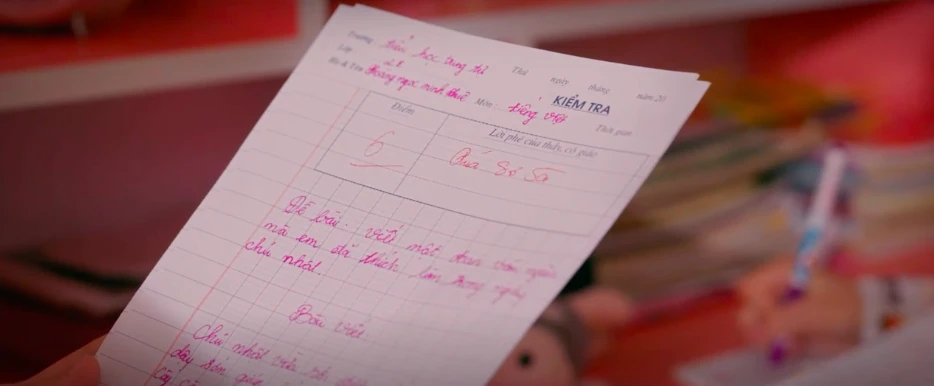 Trường tiểu học trưng trắc Thứ ngày tháng năm 20
Lớp
Họ & Tên Hoàng ngọc minh thuê Môn: tiếng việt KIỂM TRA
Thời gian
Điểm Lời phê của thầy, cô giáo
6 Quá Sơ Sài
Đề bài: viết một đoạn văn ngắn
mà em đã thích làm trong ngày
chủ nhật
Bài viết
Chủ nhật
dậy sớm giúp